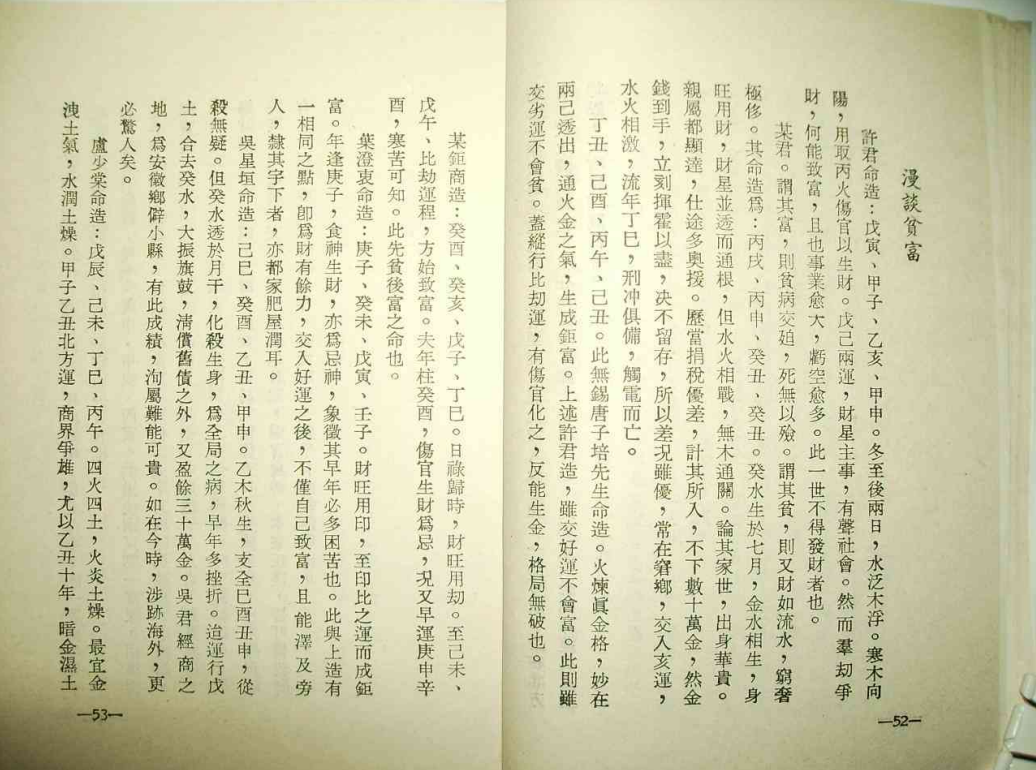 漫談貧富
許君命造：戊寅、甲子、乙亥、甲申。冬至後兩日，水泛木浮。寒木向
陽，用取丙火傷官以生財。戊己兩運，財星主事，有聲社會。然而羣刼爭
財，何能致富，且也事業愈大，虧空愈多。此一世不得發財者也。
某君。謂其富，則貧病交廹，死無以殮。謂其貧，則又財如流水，窮奢
極侈。其命造爲：丙戌、丙申、癸丑、癸丑。癸水生於七月，金水相生，身
旺用財，財星並透而通根，但水火相戰，無木通關。論其家世，出身華貴。
親屬都顯達，仕途多奧援。歷當捐稅優差，計其所入，不下數十萬金，然金
錢到手，立刻揮霍以盡，决不留存，所以差况雖優，常在窘鄉，交入亥運，
水火相激，流年丁巳，刑冲俱備，觸電而亡。
丁丑、己酉、丙午、己丑。此無錫唐子培先生命造。火煉眞金格，妙在
兩己透出，通火金之氣，生成鉅富。上述許君造，雖交好運不會富。此則雖
交劣運不會貧。蓋縱行比刼運，有傷官化之，反能生金，格局無破也。
—52—
某鉅商造：癸酉、癸亥、戊子、丁巳。日祿歸時，財旺用刼。至己未、
戊午、比刼運程，方始致富。夫年柱癸酉，傷官生財爲忌，况又早運庚申辛
酉，寒苦可知。此先貧後富之命也。
葉澄衷命造：庚子、癸未、戊寅、壬子。財旺用印，至印比之運而成鉅
富。年逢庚子，食神生財，亦爲忌神，象徵其早年必多困苦也。此與上造有
一相同之點，卽爲財有餘力，交入好運之後，不僅自己致富，且能澤及旁
人，隸其宇下者，亦都家肥屋潤耳。
吳星垣命造：己巳、癸酉、乙丑、甲申。乙木秋生，支全巳酉丑申，從
殺無疑。但癸水透於月干，化殺生身，爲全局之病，早年多挫折。迨運行戊
土，合去癸水，大振旗鼓，淸償舊債之外，又盈餘三十萬金。吳君經商之
地，爲安徽鄉僻小縣，有此成績，洵屬難能可貴。如在今時，涉跡海外，更
必驚人矣。
盧少棠命造：戊辰、己未、丁巳、丙午。四火四土，火炎土燥。最宜金
洩土氣，水潤土燥。甲子乙丑北方運，商界爭雄，尤以乙丑十年，暗金濕土
—53—